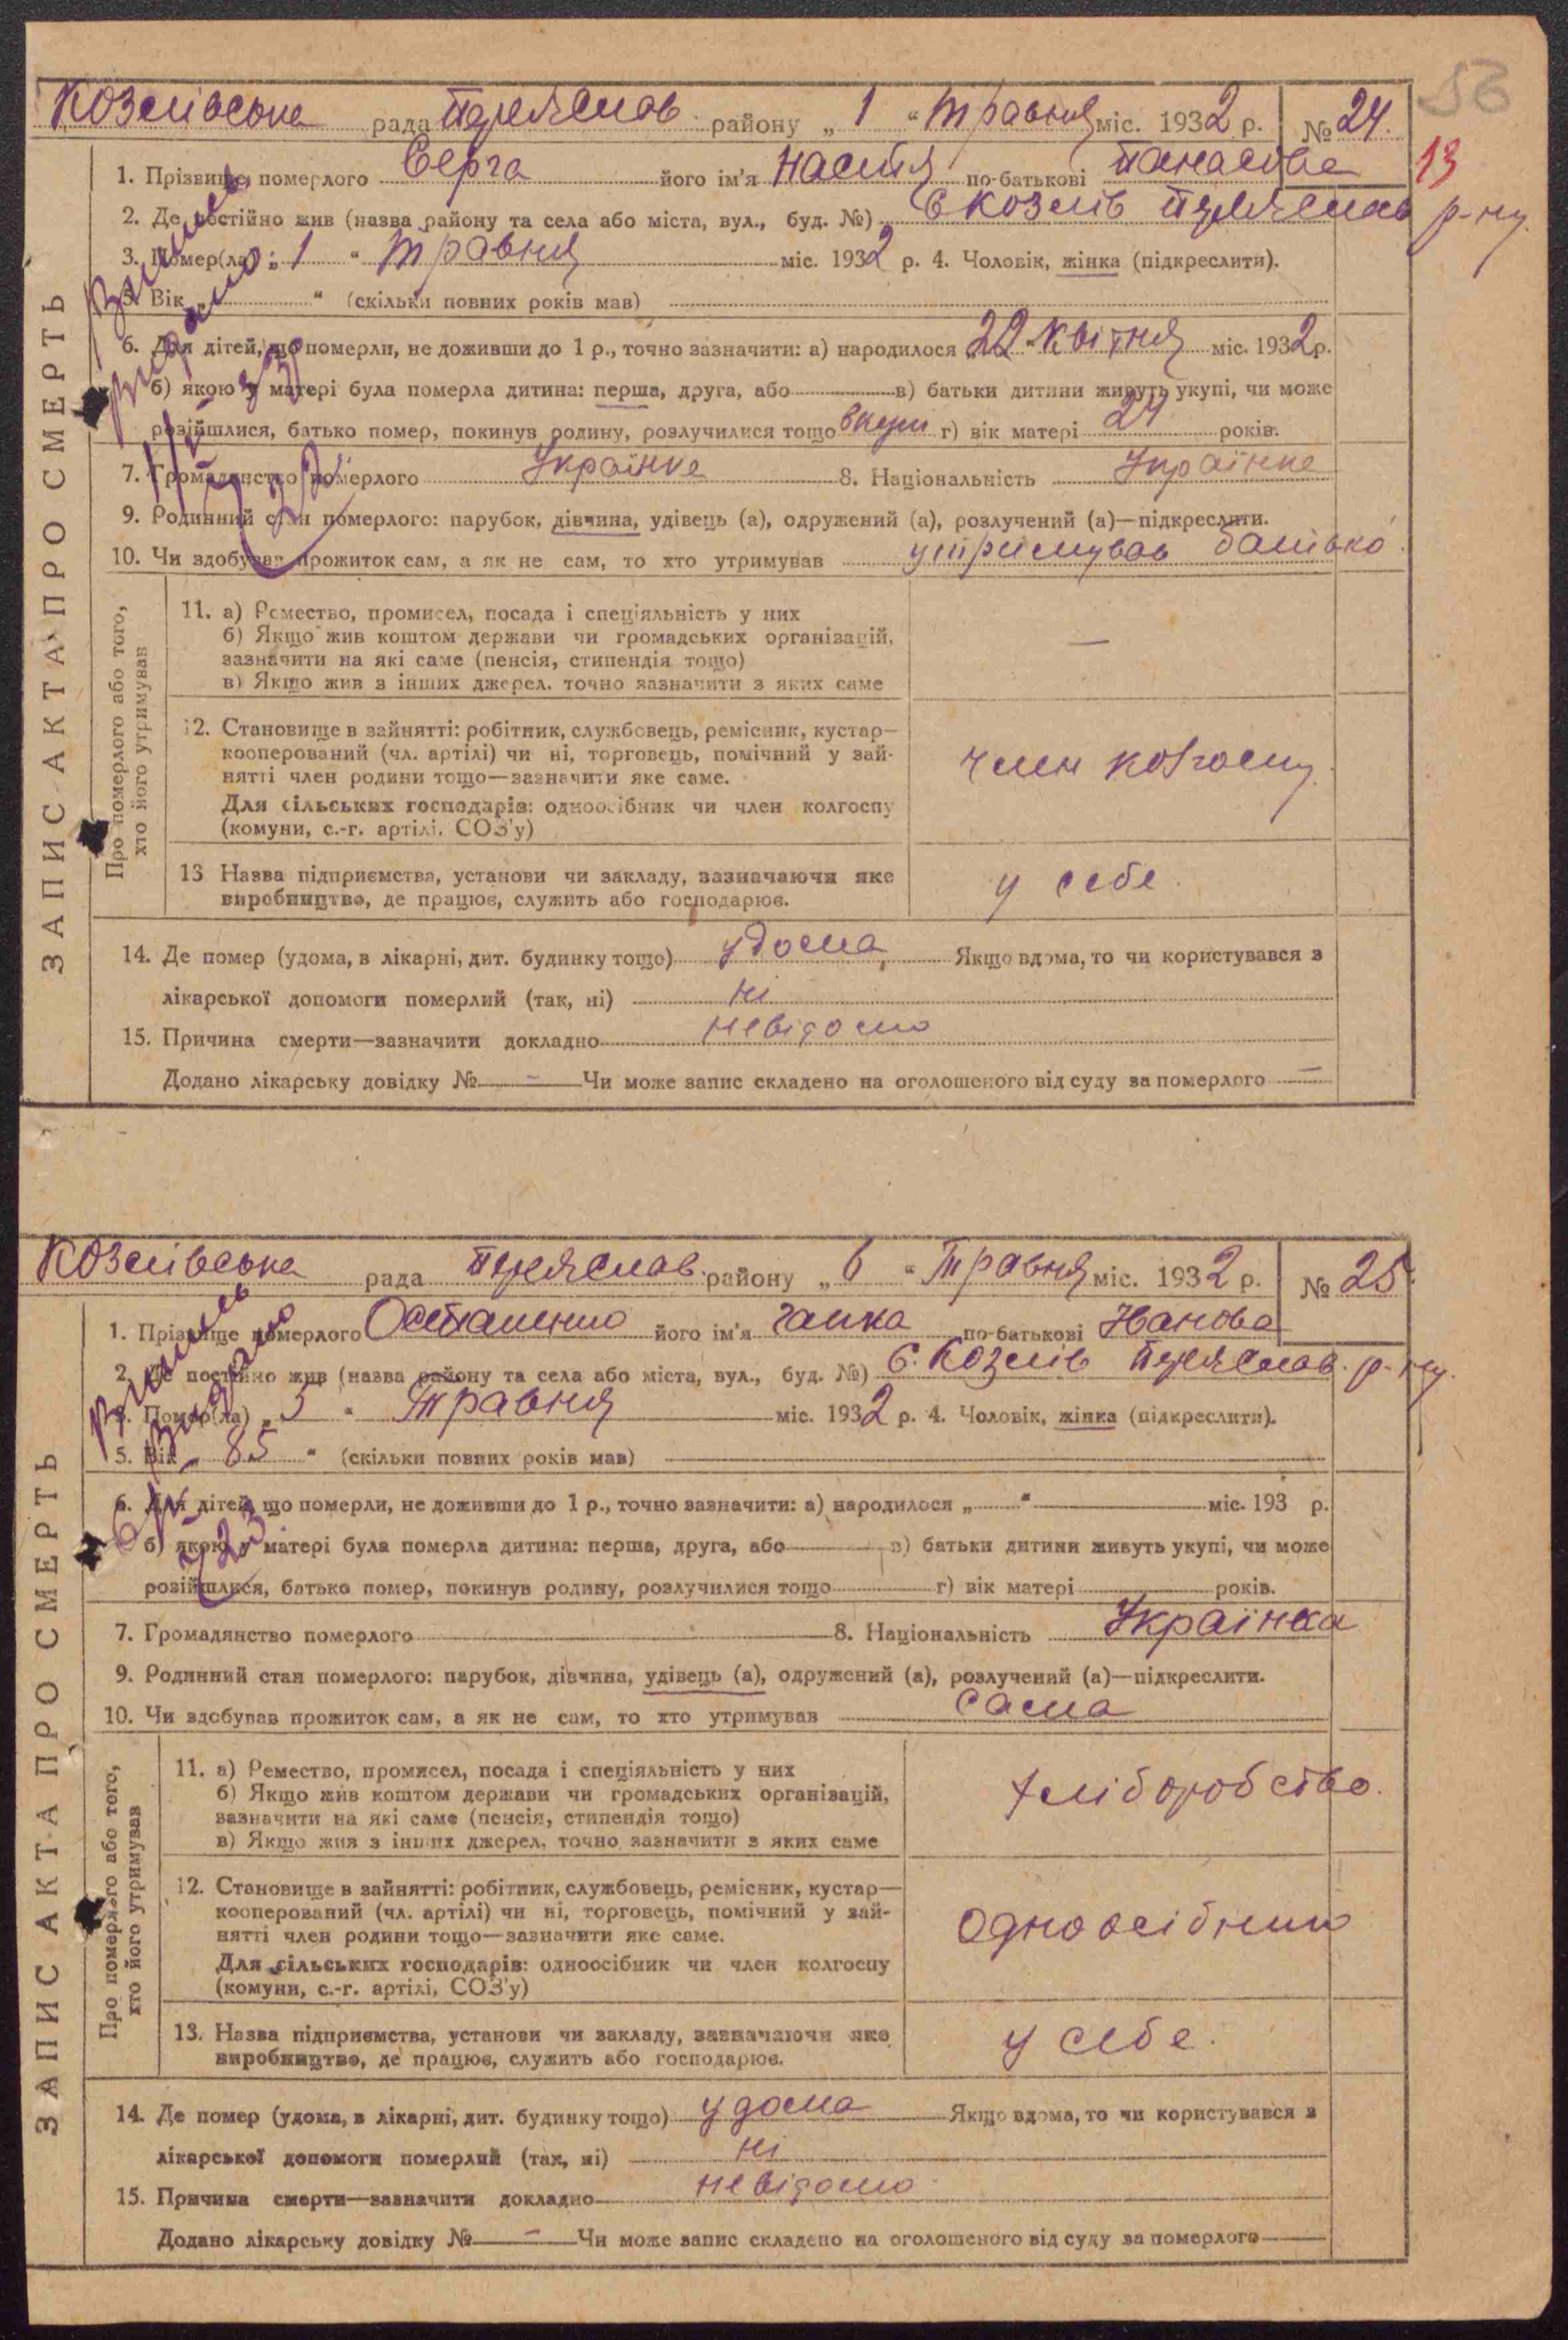 56
Козлівська рада Переяслав. району „ 1 “ Травня міс. 1932 р. № 24.
13
1. Прізвище померлого Серга його ім'я Настя по-батькові Панасова
2. Де постійно жив (назва району та села або міста, вул., буд. №) С Козлів Переяслав р-ну.
3. Помер(ла) „ 1 “ Травня міс. 1932 р. 4. Чоловік, жінка (підкреслити).
5. Вік „ “ (скільки повних років мав)
6. Для дітей, що померли, не доживши до 1 р., точно зазначити: а) народилося „ 22 “ Квітня міс. 1932 р.
б) якою у матері була померла дитина: перша, друга, або в) батьки дитини живуть укупі, чи може
розійшлися, батько помер, покинув родину, розлучилися тощо вкупі г) вік матері 24 років.
7. Громадянство померлого Українка 8. Національність Українка
9. Родинний стан померлого: парубок, дівчина, удівець (а), одружений (а), розлучений (а)—підкреслити.
10. Чи здобував прожиток сам, а як не сам, то хто утримував утримував батько.
ЗАПИС АКТА ПРО СМЕРТЬ
Про померлого або того,
хто його утримував
11. а) Ремество, промисел, посада і спеціяльність у них
б) Якщо жив коштом держави чи громадських організацій,
зазначити на які саме (пенсія, стипендія тощо)
в) Якщо жив з інших джерел, точно зазначити з яких саме
—
12. Становище в зайнятті: робітник, службовець, ремісник, кустар—
кооперований (чл. артілі) чи ні, торговець, помічний у зай-
нятті член родини тощо—зазначити яке саме.
Для сільських господарів: одноосібник чи член колгоспу
(комуни, с.-г. артілі, СОЗ'у)
член колгоспу.
13 Назва підприємства, установи чи закладу, зазначаючи яке
виробництво, де працює, служить або господарює.
у себе.
14. Де помер (удома, в лікарні, дит. будинку тощо) удома, Якщо вдома, то чи користувався з
лікарської допомоги померлий (так, ні) ні
15. Причина смерти—зазначити докладно невідомо
Додано лікарську довідку № – Чи може запис складено на оголошеного від суду за померлого —
Козлівська рада Переяслав. району „ 6 “ Травня міс. 1932 р. № 25.
1. Прізвище померлого Осташенко його ім'я Ганка по-батькові Іванова
2. Де постійно жив (назва району та села або міста, вул., буд. №) С. Козлів Переяслав. р-ну.
3. Помер(ла) „ 5 “ Травня міс. 1932 р. 4. Чоловік, жінка (підкреслити).
5. Вік „ 85 “ (скільки повних років мав)
6. Для дітей, що померли, не доживши до 1 р., точно зазначити: а) народилося „ “ міс. 193 р.
б) якою у матері була померла дитина: перша, друга, або в) батьки дитини живуть укупі, чи може
розійшлися, батько помер, покинув родину, розлучилися тощо г) вік матері років.
7. Громадянство померлого 8. Національність Українка
9. Родинний стан померлого: парубок, дівчина, удівець (а), одружений (а), розлучений (а)—підкреслити.
10. Чи здобував прожиток сам, а як не сам, то хто утримував сама
ЗАПИС АКТА ПРО СМЕРТЬ
Про померлого або того,
хто його утримував
11. а) Ремество, промисел, посада і спеціяльність у них
б) Якщо жив коштом держави чи громадських організацій,
зазначити на які саме (пенсія, стипендія тощо)
в) Якщо жив з інших джерел, точно зазначити з яких саме
хліборобство.
12. Становище в зайнятті: робітник, службовець, ремісник, кустар—
кооперований (чл. артілі) чи ні, торговець, помічний у зай-
нятті член родини тощо—зазначити яке саме.
Для сільських господарів: одноосібник чи член колгоспу
(комуни, с.-г. артілі, СОЗ'у)
одноосібник
13. Назва підприємства, установи чи закладу, зазначаючи яке
виробництво, де працює, служить або господарює.
у себе.
14. Де помер (удома, в лікарні, дит. будинку тощо) удома Якщо вдома, то чи користувався з
лікарської допомоги померлий (так, ні) ні
15. Причина смерти—зазначити докладно невідомо
Додано лікарську довідку № – Чи може запис складено на оголошеного від суду за померлого